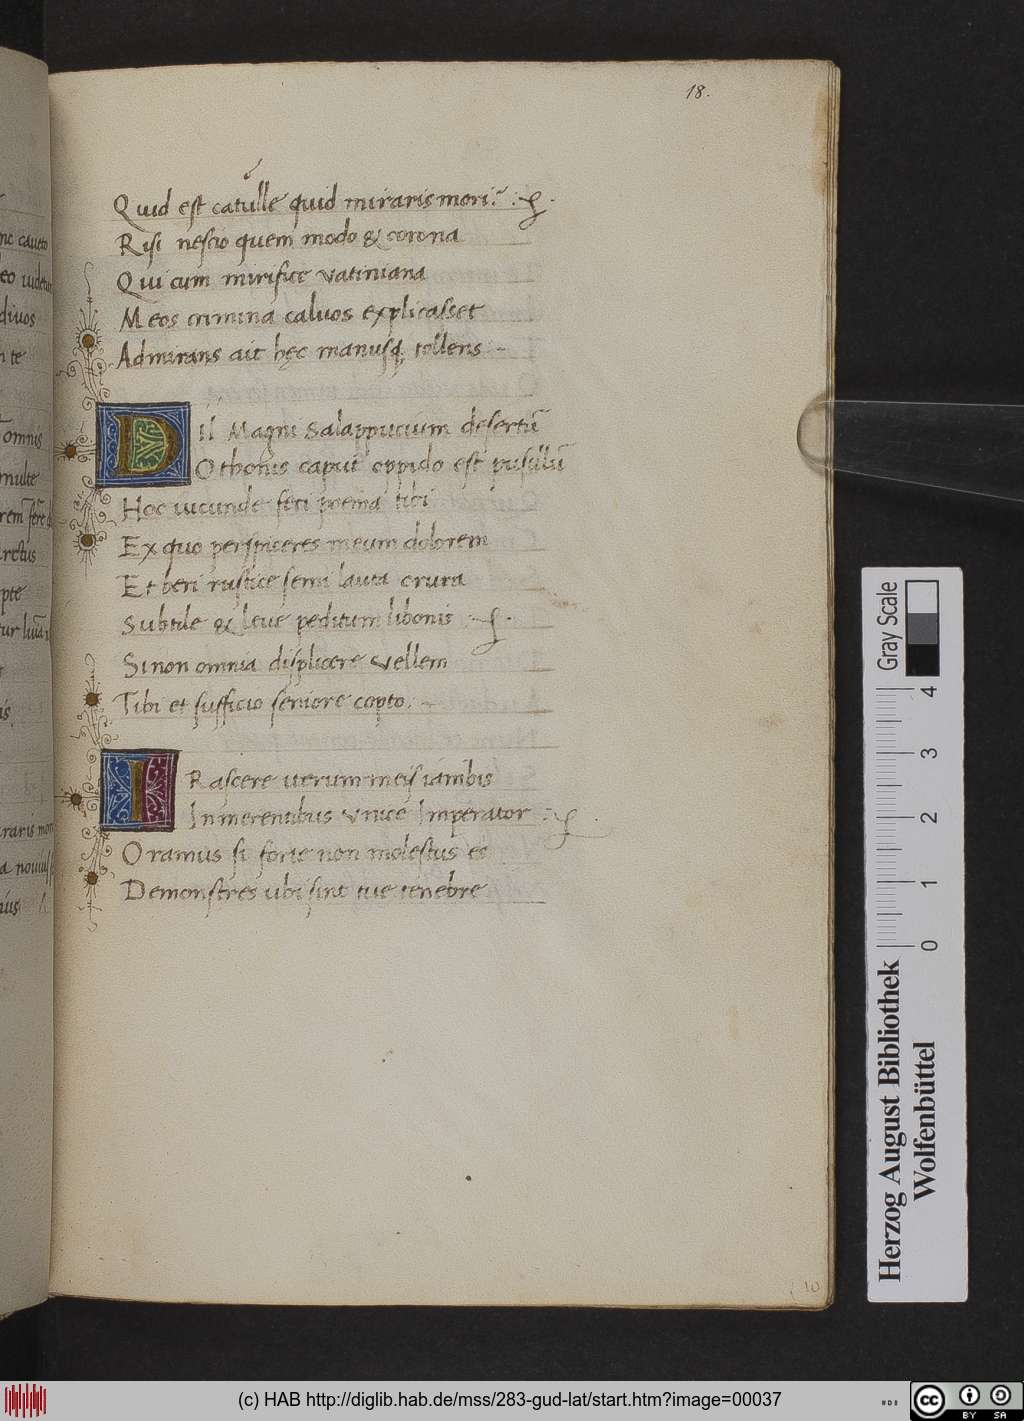 18.
Quid est catulle quid miraris mori?
Risi nescio quem modo & corona
Qui cum mirifice vatiniana
Meos crimina caluos explicasset
Admirans ait hęc manusq; tollens
DIl Magni salappucium desertũ
Othonis caput oppido est pusillũ
Hoc iucunde feri poema tibi
Ex quo perspiceres meum dolorem
Et heri rustice semi lauta crura
Subtile & leue peditum libonis
Si non omnia displicere vellem
Tibi et sufficio seniore copto.
IRascere uerum meis iambis
Inmerentibus vnice Imperator
Oramus si forte non molestus es
Demonstres ubi sint tue tenebre
10
Gray Scale
0 1 2 3 4
Herzog August Bibliothek
Wolfenbüttel
(c) HAB http://diglib.hab.de/mss/283-gud-lat/start.htm?image=00037
cc BY SA